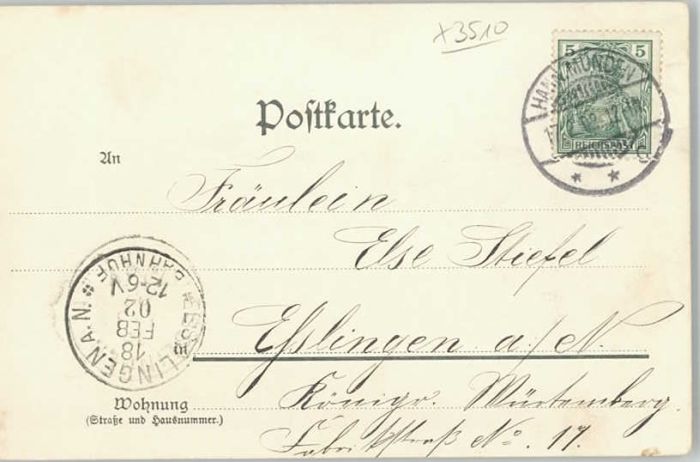 x3510
5 5
HANN. MÜNDEN
02
REICHSPOST
Postkarte.
An
Fräulein
Else Stiefel
Esslingen a/N.
ESSLINGEN A. N.
BAHNHOF
12-6 V
02
FEB
18
Wohnung
(Straße und Hausnummer.)
Königr. Württemberg.
Fabrikstraß No. 17.